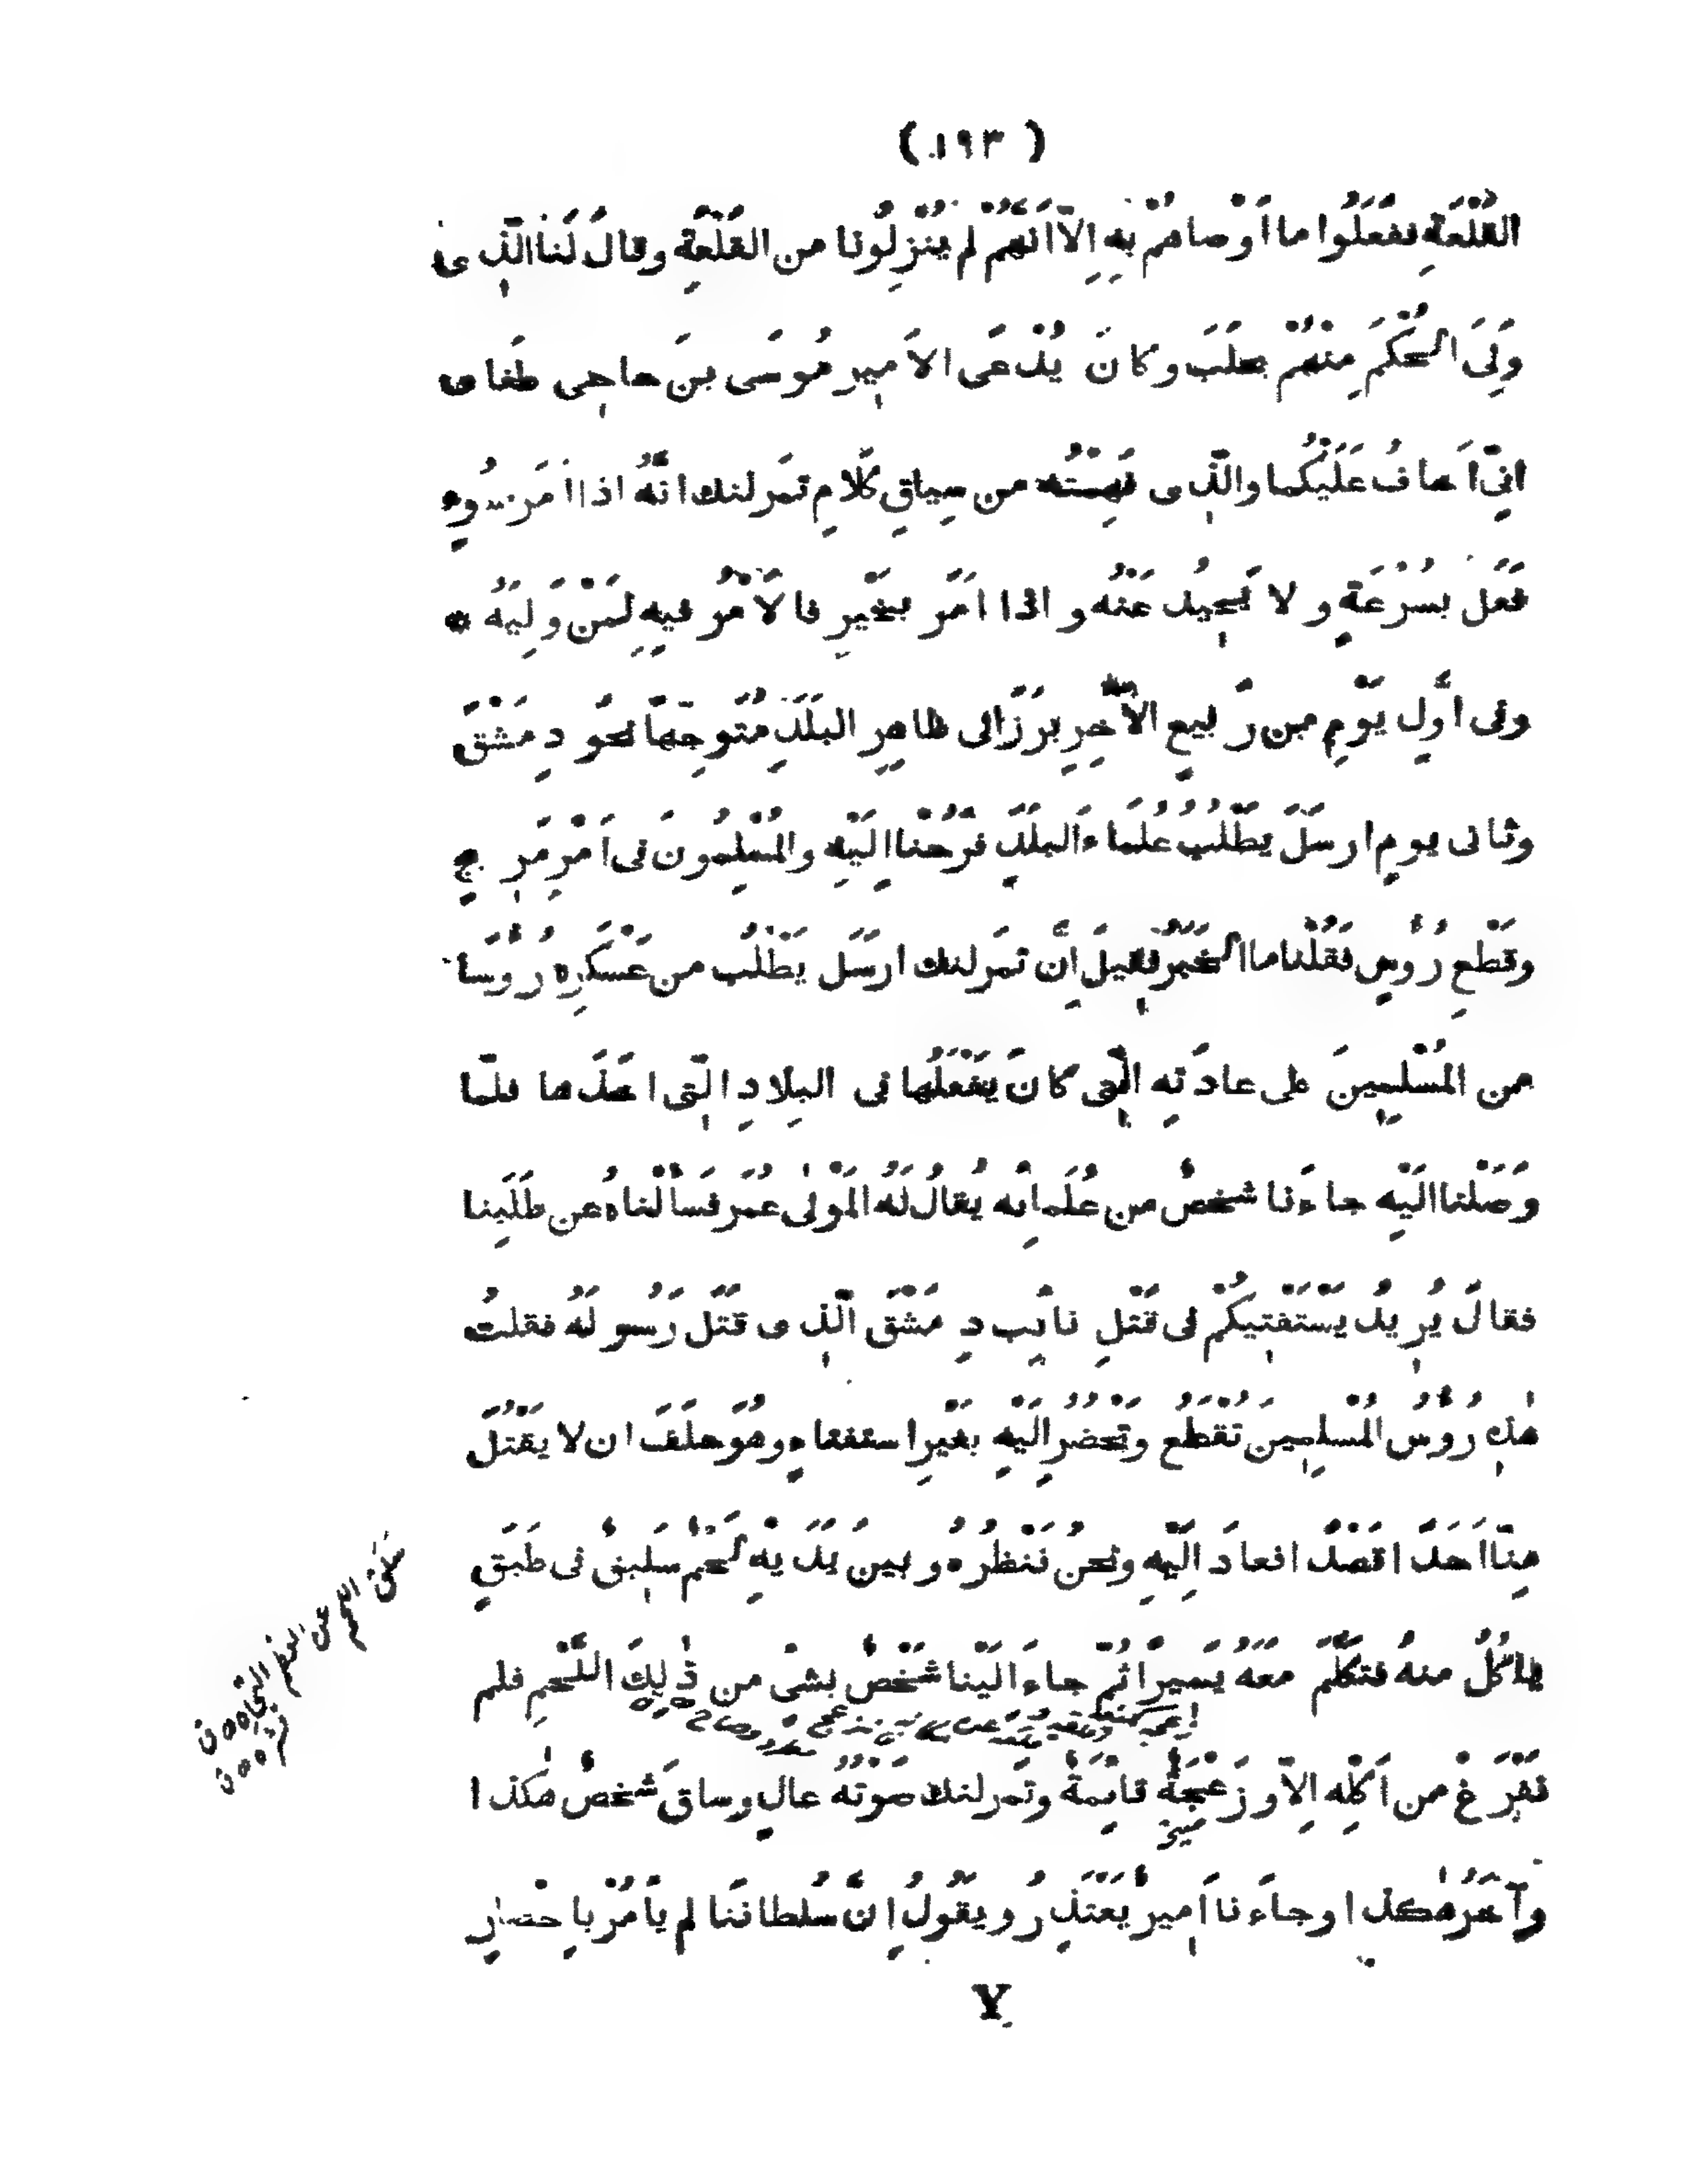 (١٩٣)
القَلْعَةِ ففَعَلُوا ما اَوْصاهُمْ بِهِ اِلاّ اَنَّهُمْ لم يُنْزِلُونا من القَلْعَةِ وقالَ لَنا الّذِى
وَلِىَ الحُكْمَ مِنْهُمْ بحلَبَ وكانَ يُدْعَى الاَمير مُوسَى بنَ حاجى طغاى
انّى اَخافُ عَلَيْكُما والّذِى فَهِمْتُه من سِياقِ كَلامِ تمَرلنك انَّهُ اذا اَمَر بسُوءٍ
فَعَل بسُرْعَةٍ ولا يَحِيدُ عَنْهُ واذا اَمَر بخَيْرٍ فالاَمْرُ فيهِ لِمَنْ وَلِيَهُ *
وفى اَوّلِ يَوْمٍ من رَبيعِ الآخِرِ بَرَزَ الى ظاهِرِ البَلَدِ مُتَوجِّهًا نحْوَ دِمَشْقَ
وثانى يومٍ ارسَلَ يَطْلُبُ عُلَمَاءَ البلَدِ فَرُحْنا اِلَيْهِ والمُسْلِمُونَ فى اَمْرٍ مَرِيجٍ
وقَطْعِ رُؤُسٍ فَقُلْنا ما الخَبَرُ فقِيلَ اِنَّ تَمَرلنك ارسَل يَطْلُب من عَسْكَرِهِ رُؤُسًا
من المُسْلِمِينَ على عادَتِه الّتى كانَ يَفْعَلُها فى البِلادِ الّتى اخَذَها فلمّا
وَصَلْنا الَيْهِ جاءَنا شخصٌ من عُلَمائِه يُقالُ لَهُ المَوْلٰى عُمَر فَسأَلْناهُ عن طَلَبِنا
فقالَ يُرِيدُ يَسْتَفْتِيكُمْ فى قَتْلِ نائِب دِمَشْقَ الّذِى قَتَل رَسُولَهُ فقلتُ
هٰذِهِ رُؤُسُ المُسْلِمِينَ تُقْطَعُ وتُحْضَرُ اِلَيْهِ بغَيْرِ استفتاءٍ وهُوَ حلَفَ ان لا يَقْتُلَ
مِنّا اَحَدًا قَصْدًا فعادَ اِلَيْهِ ونحنُ نَنْظُرُهُ وبينَ يَدَيْهِ لَحْمٌ سلِيقٌ فى طَبَقٍ
يأكُلُ منهُ فتكَلَّمَ مَعَهُ يَسيرًا ثُمّ جاءَ الَيْنا شَخْصٌ بشىْءٍ من ذٰلِكَ اللَّحْمِ فلم
نَفْرَغْ من اَكْلِه اِلاّ وزَعْجَةٌ قائِمَةٌ وتَمَرلنك صَوْتُهُ عالٍ وساقَ شَخصٌ هٰكَذا
وآخَرُ هٰكَذا وجاءَنا اَميرٌ يَعْتَذِرُ ويَقُولُ اِنَّ سُلطانَنا لم يأمُرْ باِحْضارِ
Y